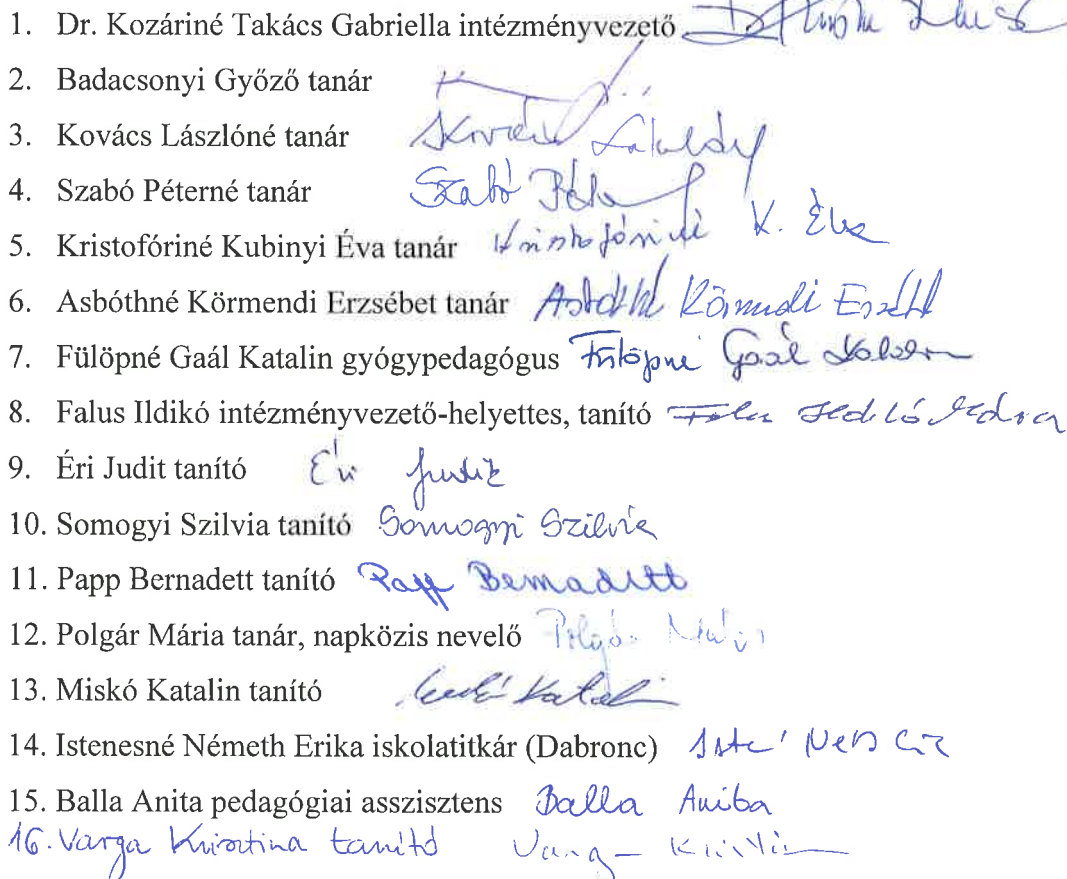 1. Dr. Kozáriné Takács Gabriella intézményvezető
2. Badacsonyi Győző tanár
3. Kovács Lászlóné tanár
4. Szabó Péterné tanár Szabó
5. Kristofóriné Kubinyi Éva tanár Kristofóriné K. Éva
6. Asbóthné Körmendi Erzsébet tanár Körmendi
7. Fülöpné Gaál Katalin gyógypedagógus Fülöpné Gaál Katalin
8. Falus Ildikó intézményvezető-helyettes, tanító
9. Éri Judit tanító Éri Judit
10. Somogyi Szilvia tanító Somogyi Szilvia
11. Papp Bernadett tanító Papp Bernadett
12. Polgár Mária tanár, napközis nevelő Polgár Mária
13. Miskó Katalin tanító Katalin
14. Istenesné Németh Erika iskolatitkár (Dabronc)
15. Balla Anita pedagógiai asszisztens Balla Anita
16. Varga Krisztina tanító Varga Krisztina